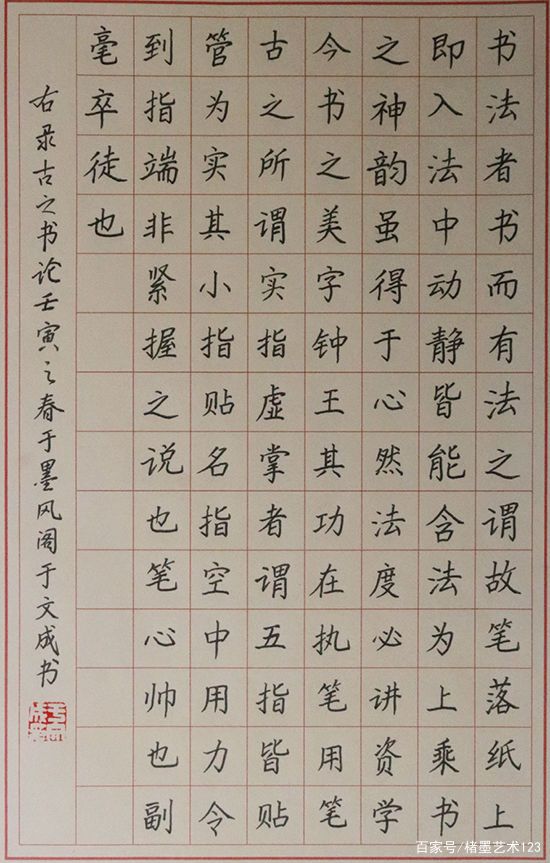 书法者书而有法之谓故笔落纸上
即入法中动静皆能含法为上乘书
之神韵虽得于心然法度必讲资学
今书之美字钟王其功在执笔用笔
古之所谓实指虚掌者谓五指皆贴
管为实其小指贴名指空中用力令
到指端非紧握之说也笔心帅也副
毫卒徒也
右录古之书论壬寅之春于墨风阁于文成书
百家号/楮墨艺术123